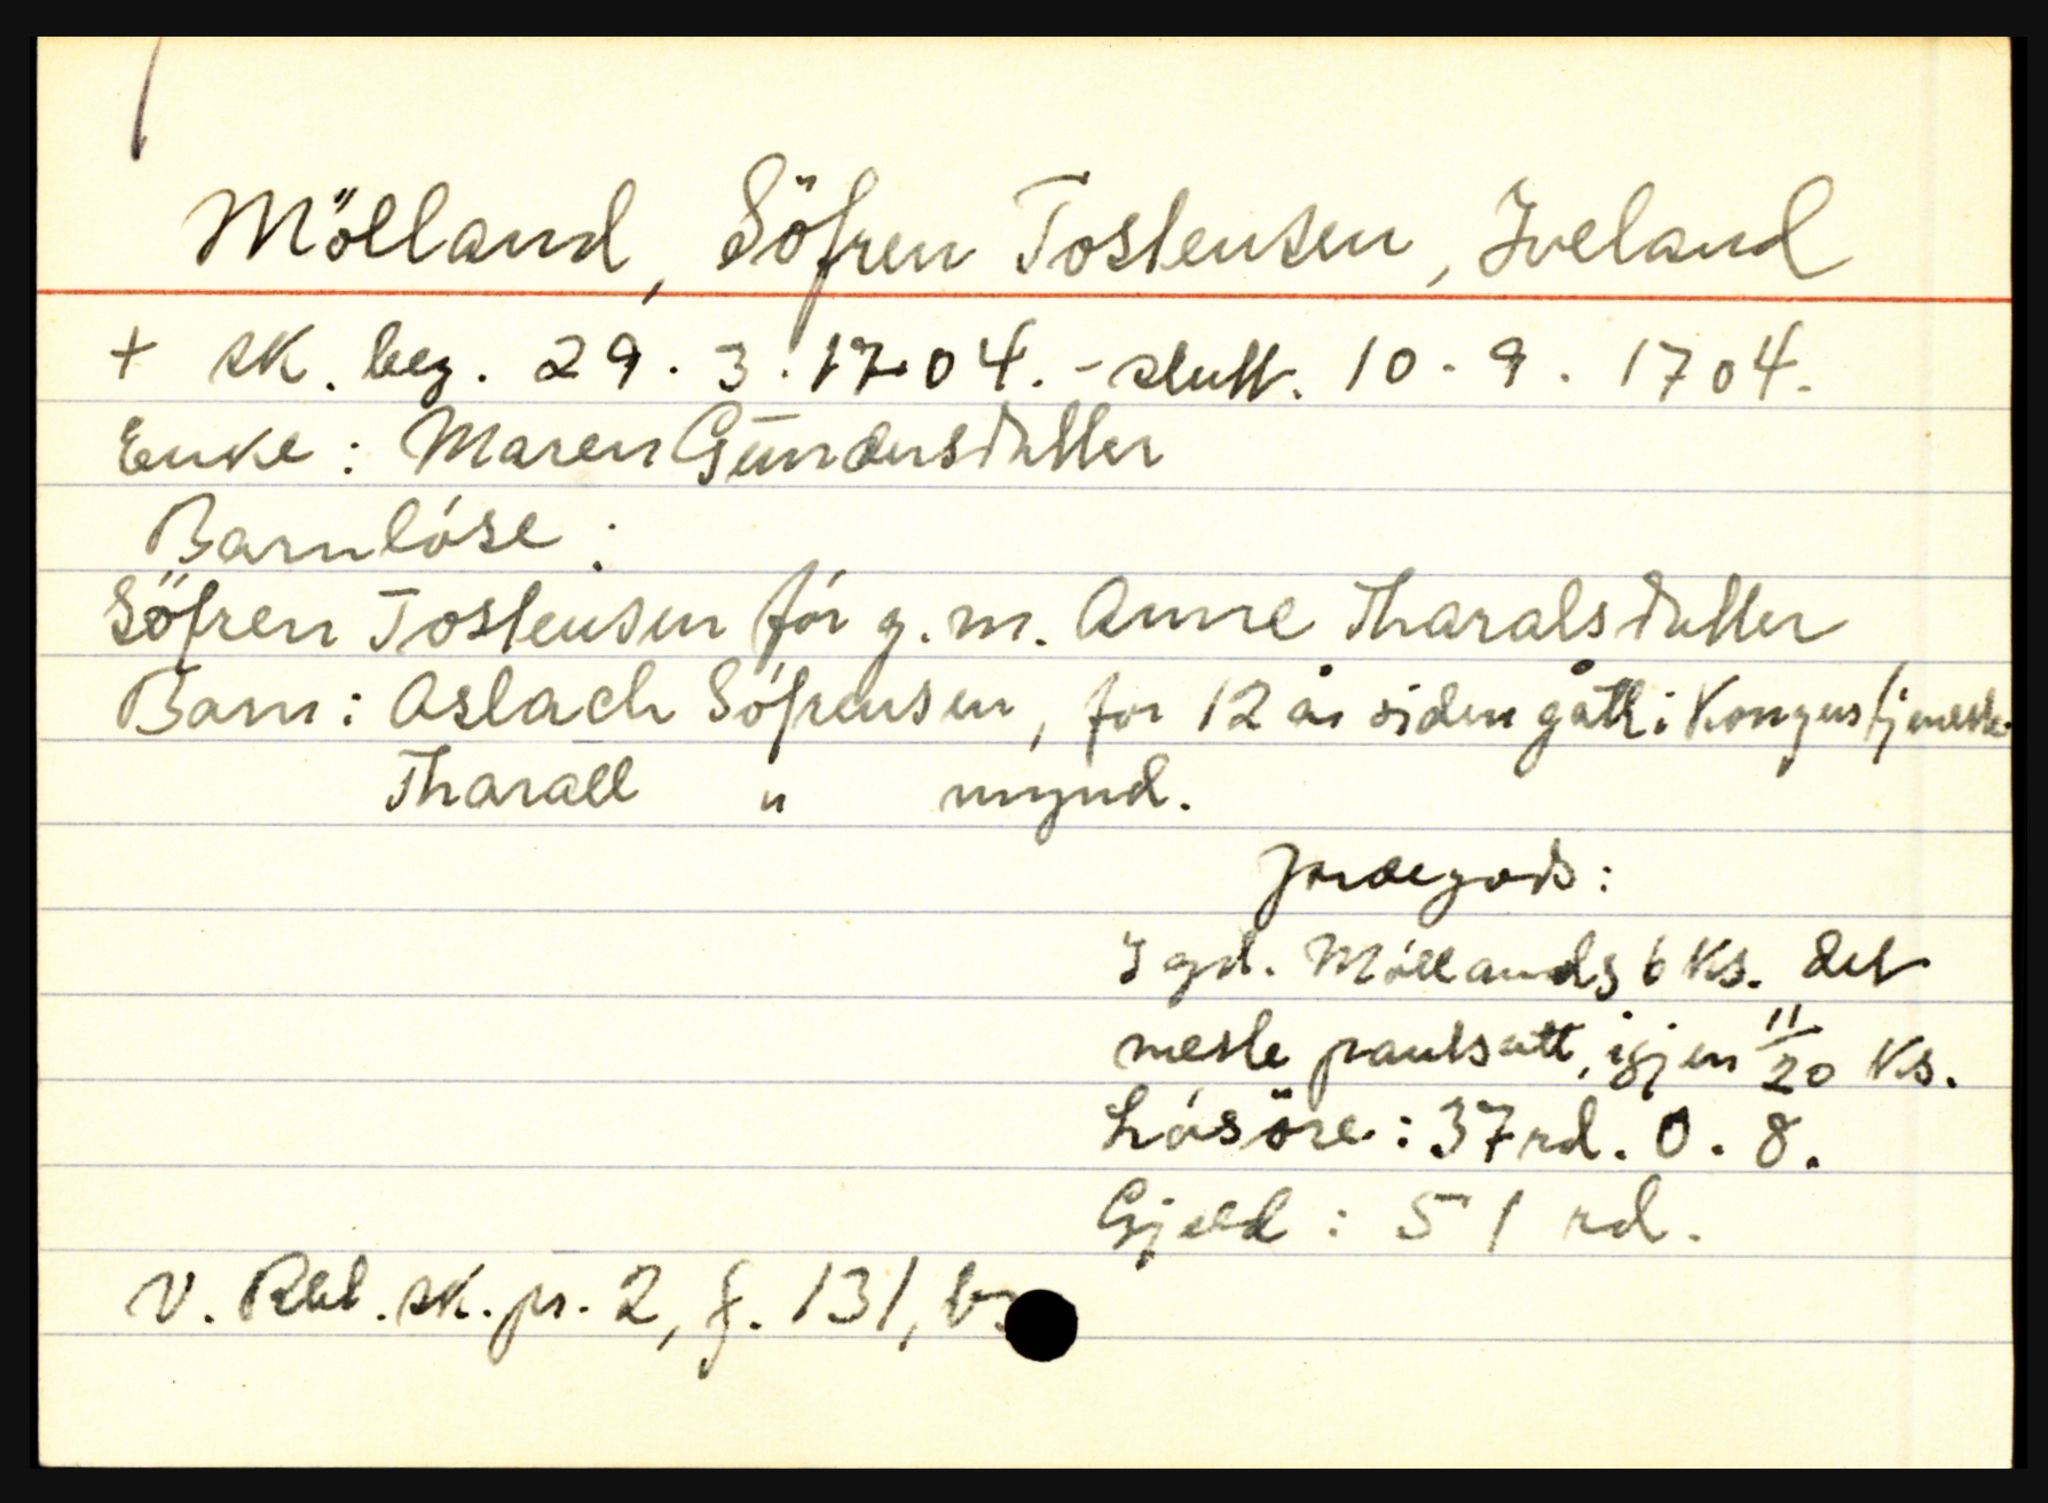 Mölland, Söfren Tostensen, Iveland
+ sk. beg. 29. 3. 1704. - slutt. 10. 9. 1704.
Enke: Maren Gündersdatter
Barnlóse:
Söfren Tostensen fór g. m. Anne Tharalsdatter
Barn: Aslach Sófrensen, for 12 år siden gått i Kongens tjeneste
Tharall " mynd.
Jordegods:
I gd. Móllands 6 ks. det
meste pantsatt, igjen 11/20 ks.
Lósöre: 37 rd. 0. 8.
Gjeld: 51 rd.
V. Rbl. sk. pr. 2, f. 131, b.